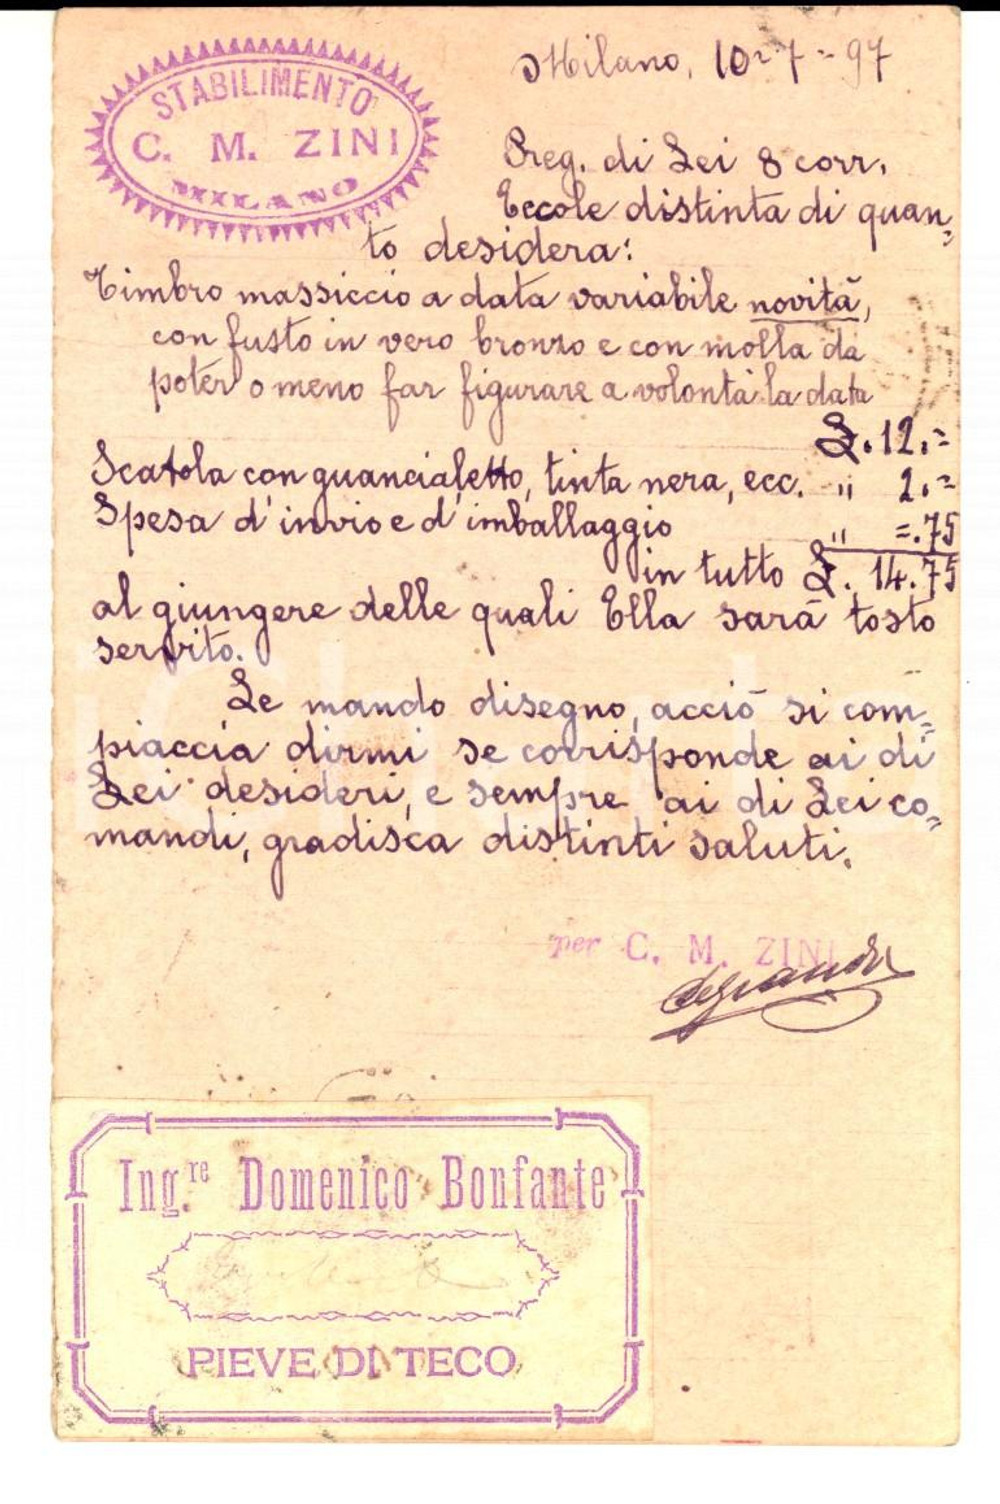 STABILIMENTO
C. M. ZINI
MILANO
Milano, 10-7-97
Preg. di Lei 8 corr.
Eccole distinta di quan=
to desidera:
Timbro massiccio a data variabile novità,
con fusto in vero bronzo e con molla da
poter o meno far figurare a volontà la data
L. 12.=
Scatola con guancialetto, tinta nera, ecc. " 2.=
Spesa d'invio e d'imballaggio " =.75
in tutto L. 14.75
al giungere delle quali Ella sarà tosto
servito.
Le mando disegno, acciò si com=
piaccia dirmi se corrisponde ai di
Lei desideri, e sempre ai di Lei co=
mandi, gradisca distinti saluti.
per C. M. ZINI
Ing.re Domenico Bonfante
PIEVE DI TECO